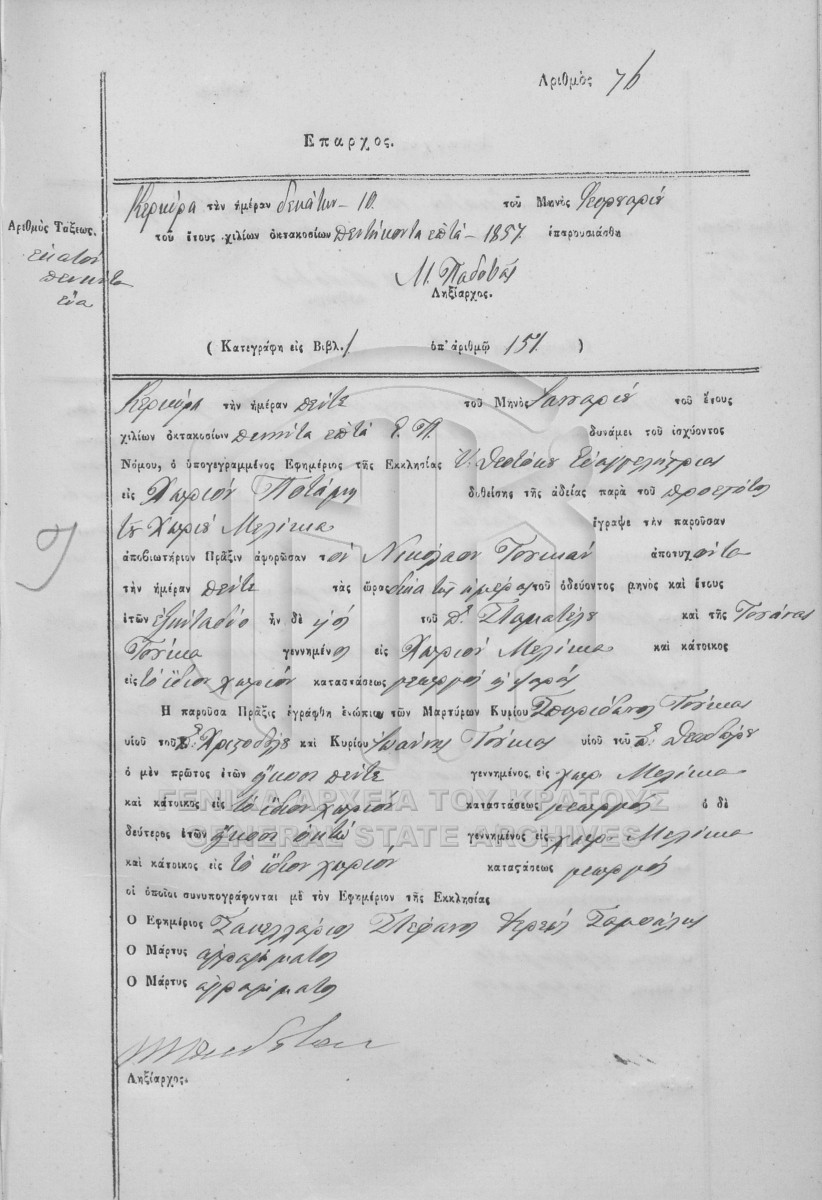 Αριθμὸς 76
Επαρχος.
Κερκύρα τὴν ἡμέραν δεκάτην - 10 τοῦ Μηνὸς Φεβρουαρίου
Αριθμὸς Τάξεως, ἑκατὸν πενῆντα ἕνα
τοῦ ἔτους χιλίων ὀκτακοσίων πεντήκοντα ἑπτὰ - 1857 ἐπαρουσιάσθη
Μ. Παδοβᾶς
Ληξίαρχος.
( Κατεγράφη εἰς Βιβλ. 1 ὑπ' ἀριθμῷ 151 )
Κερκύρα τὴν ἡμέραν πέντε τοῦ Μηνὸς Ιανναρίου τοῦ ἔτους
χιλίων ὀκτακοσίων πενῆντα ἑπτὰ Ε. Π. δυνάμει τοῦ ἰσχύοντος
Νόμου, ὁ ὑπογεγραμμένος Ἐφημέριος τῆς Εκκλησίας Υ. Θεοτόκου Εὐαγγελίστριας
εἰς Χωριὸν Ποτάμι δοθείσης τῆς ἀδείας παρὰ τοῦ Προεστῶτος
τοῦ Χωριοῦ Μελίκια ἔγραψε τὴν παροῦσαν
ἀποβιωτήριον Πρᾶξιν ἀφορῶσαν τὸν Νικόλαον Τσούκαν ἀποτυχόντα
τὴν ἡμέραν πέντε τὰς ὥρας δέκα τῆς ἡμέρας τοῦ ὁδεύοντος μηνὸς καὶ ἔτους
ἐτῶν ἑξῆντα δύο ἦν δὲ υἱὸς τοῦ Σταματέλου καὶ τῆς
γεννημένος εἰς Χωριὸν Μελίκια καὶ κάτοικος
εἰς τὸ ἴδιον χωριὸν καταστάσεως γεωργὸς
Ἡ παροῦσα Πρᾶξις ἐγράφθη ἐνώπιον τῶν Μαρτύρων Κυρίου Σπυρίδωνος Τσούκας
υἱοῦ τοῦ Χριστοδούλου καὶ Κυρίου Ἰωάννης Τσούκας υἱοῦ τοῦ Θεοδώρου
ὁ μὲν πρῶτος ἐτῶν ἤκοσι πέντε γεννημένος εἰς χωρ. Μελίκια
καὶ κάτοικος εἰς τὸ ἴδιον χωριὸν καταστάσεως γεωργὸς ὁ δὲ
δεύτερος ἐτῶν ἤκοσι ὀκτὼ γεννημένος εἰς χωρ. Μελίκια
καὶ κάτοικος εἰς τὸ ἴδιον χωριὸν καταστάσεως γεωργὸς
οἱ ὁποῖοι συνυπογράφονται μὲ τὸν Ἐφημέριον τῆς Ἐκκλησίας
Ο Ἐφημέριος Σακελλάριος Στέφανος Ἱερεὺς
Ο Μάρτυς ἀγράμματος
Ο Μάρτυς ἀγράμματος
Ληξίαρχος.
ΓΕΝΙΚΑ ΑΡΧΕΙΑ ΤΟΥ ΚΡΑΤΟΥΣ
GENERAL STATE ARCHIVES